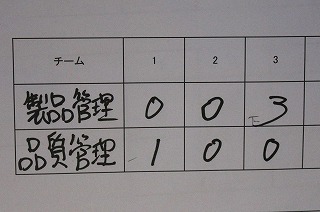 チーム 1 2 3
製品管理 0 0 3
品質管理 1 0 0